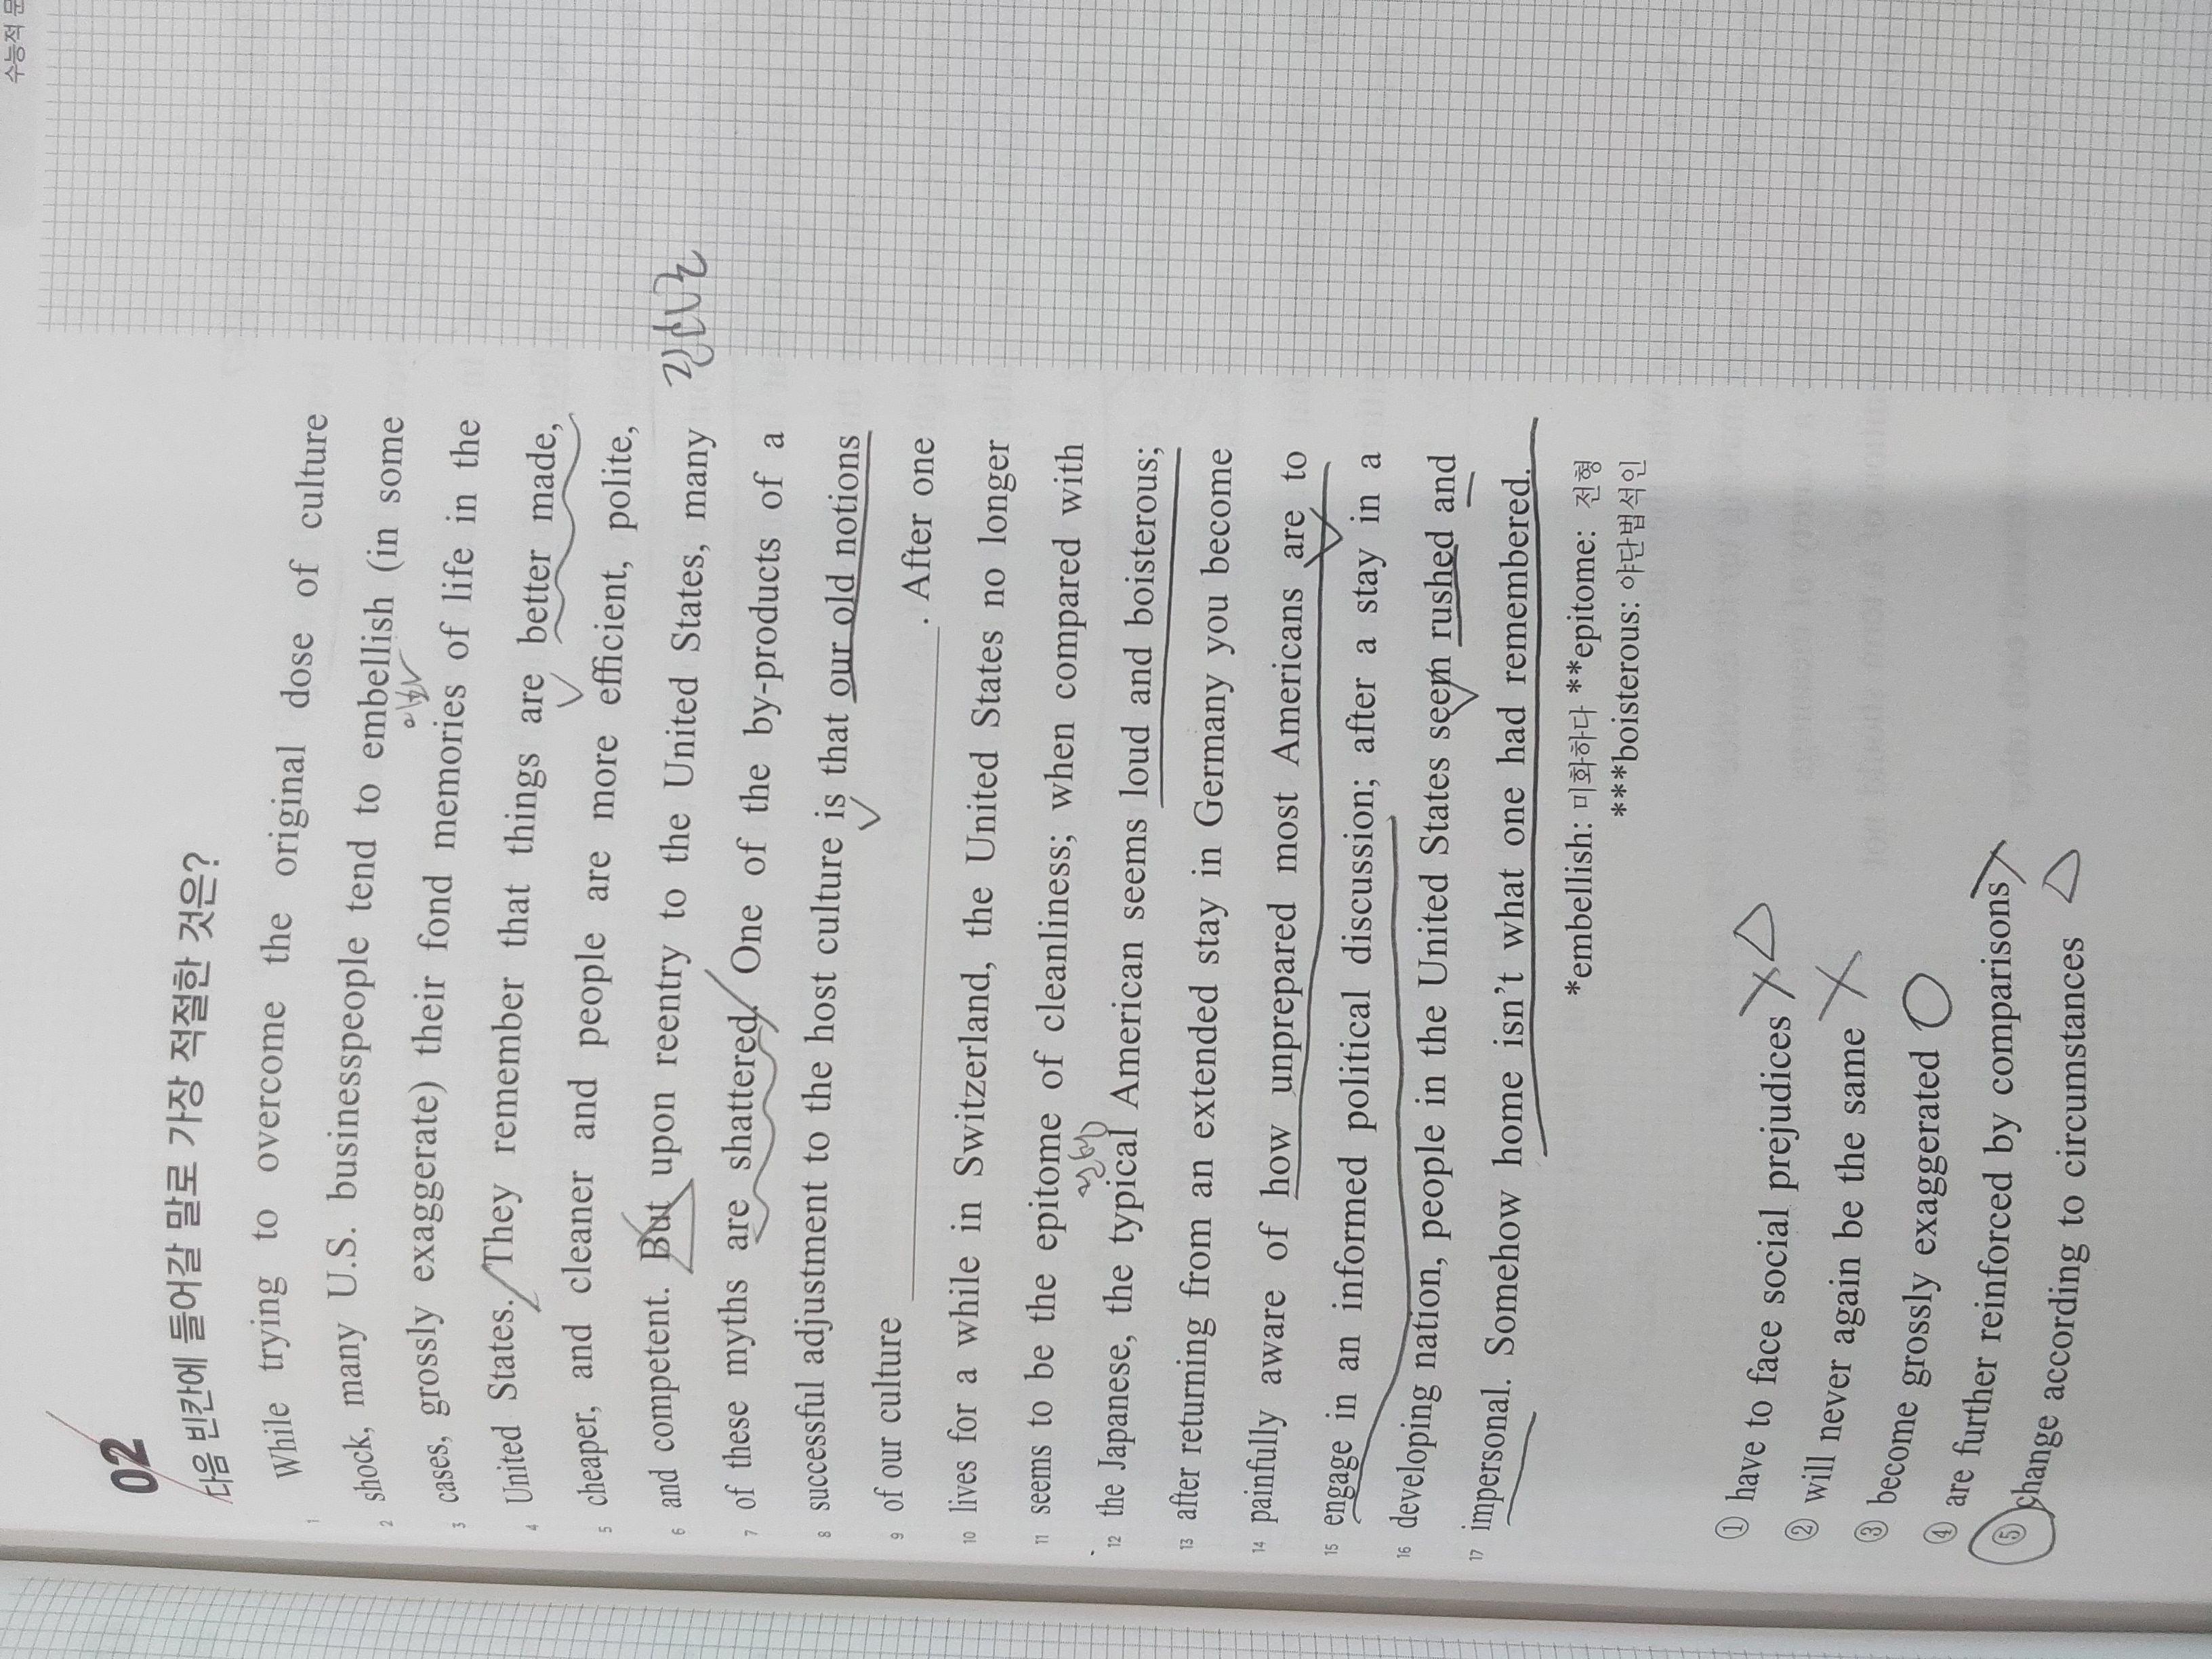 수능적
02
다음 빈칸에 들어갈 말로 가장 적절한 것은?
1 While trying to overcome the original dose of culture
2 shock, many U.S. businesspeople tend to embellish (in some
3 cases, grossly exaggerate) their fond memories of life in the
4 United States. They remember that things are better made,
5 cheaper, and cleaner and people are more efficient, polite,
6 and competent. But upon reentry to the United States, many
7 of these myths are shattered. One of the by-products of a
8 successful adjustment to the host culture is that our old notions
9 of our culture ____________. After one
10 lives for a while in Switzerland, the United States no longer
11 seems to be the epitome of cleanliness; when compared with
12 the Japanese, the typical American seems loud and boisterous;
13 after returning from an extended stay in Germany you become
14 painfully aware of how unprepared most Americans are to
15 engage in an informed political discussion; after a stay in a
16 developing nation, people in the United States seem rushed and
17 impersonal. Somehow home isn't what one had remembered.
*embellish: 미화하다 **epitome: 전형
***boisterous: 야단법석인
① have to face social prejudices
② will never again be the same
③ become grossly exaggerated
④ are further reinforced by comparisons
⑤ change according to circumstances